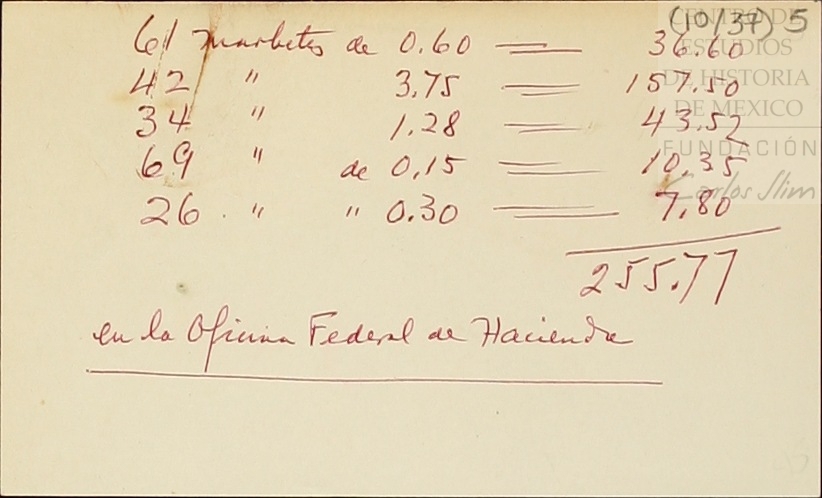 (10/37) 5
61 marbetes de 0.60 = 36.60
42 " 3.75 = 157.50
34 " 1.28 = 43.52
69 " de 0.15 = 10.35
26 " " 0.30 = 7.80
255.77
en la Oficina Federal de Hacienda
CENTRO DE
ESTUDIOS
DE HISTORIA
DE MEXICO
FUNDACIÓN
Carlos Slim